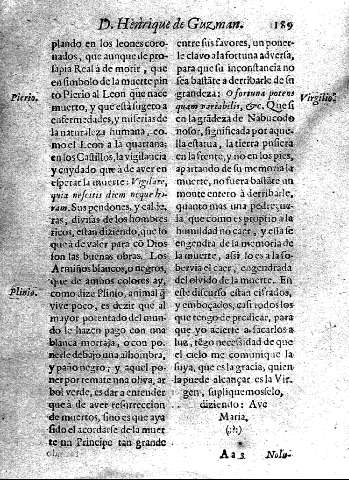 D. Henrique de Guzman. 189
plando en los leones coro-
nados, que aunque de pro-
sapia Real à de morir, que
en simbolo de la muerte pin
Pierio.
to Pierio al Leon que nace
muerto, y que està sugeto a
enfermedades, y miserias de
la naturaleza humana, co-
mo el Leon a la quartana;
en los Castillos, la vigilancia
y cuydado que à de aver en
esperar la muerte: Vigilate,
quia nescitis diem neque ho-
ram. Sus pendones, y calde-
ras, divisas de los hombres
ricos, estàn diziendo, que lo
que à de valer para cõ Dios
son las buenas obras. Los
Armiños blancos, o negros,
que de ambos colores ay,
Plinio.
como dize Plinio, animal q̃
vive poco, es dezir que al
mayor potentado del mun-
do le hazen pago con una
blanca mortaja, o con po-
nerle debajo una alhombra,
y paño negro; y aquel po-
ner por remate una oliva, ar
bol verde, es dar a entender
que à de aver resurreccion
de muertos, sino es que aya
sido el acordarse de la muer
te un Principe tan grande
entre sus favores, un poner-
le clavo a la fortuna adversa,
para que su inconstancia no
sea bastãte a derribarle de su
grandeza: O fortuna potens
Virgilio.
quam variabilis, &c. Que si
en la grãdeza de Nabucodo
nosor, significada por aque-
lla estatua, la tierra pusiera
en la frente, y no en los pies,
apartando de su memoria la
muerte, no fuera bastãte un
monte entero à derribarle,
quanto mas una pedreçue-
la, que como es proprio a la
humildad no caer, y ella se
engendra de la memoria de
la muerte, assi lo es a la so-
bervia el caer, engendrada
del olvido de la muerte. En
este discurso estàn cifrados,
y emboçados, casi todos los
que tengo de predicar, para
que yo acierte a sacarlos a
luz, tẽgo necessidad de que
el cielo me comunique la
suya, que es la gracia, quien
la puede alcançar es la Vir-
gen, supliquemoselo,
diziendo: Ave
Maria,
A a 3 Nolu-